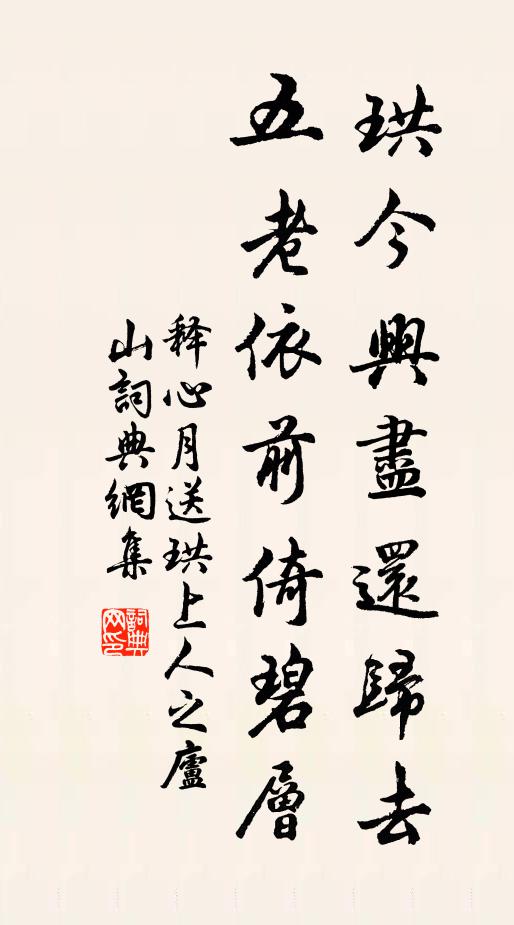 珙今興盡還歸去
五老依前倚碧層
释心月送珙上人之廬
山詞典網集
詞典
网印